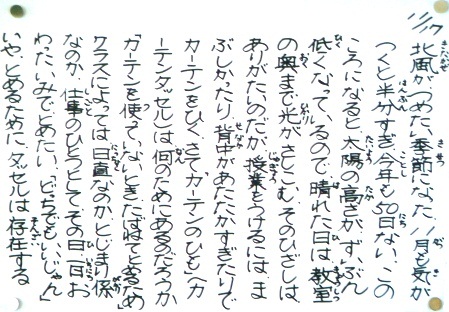 北風がつめたい季節になった 11月も気が
つくと半分すぎ 今年も50日ない。この
ころになると太陽の高さがずいぶん
低くなっているので、晴れた日は教室
の奥まで光がさしこむ。そのひざしは
ありがたいのだが、授業をうけるにはま
ぶしかったり、背中があたたかすぎたりで
カーテンをひく。さて、カーテンのひも(カ
ーテンタッセル)は何のためにあるだろうか
「カーテンを使っていないときたばねてとめるため」
クラスによっては日直なのかとじまり係
なのか、仕事のひとつとしてその日一日お
わったいみでとめたい。「どっちでもいいじゃん」
いや、とめるためにタッセルは存在する